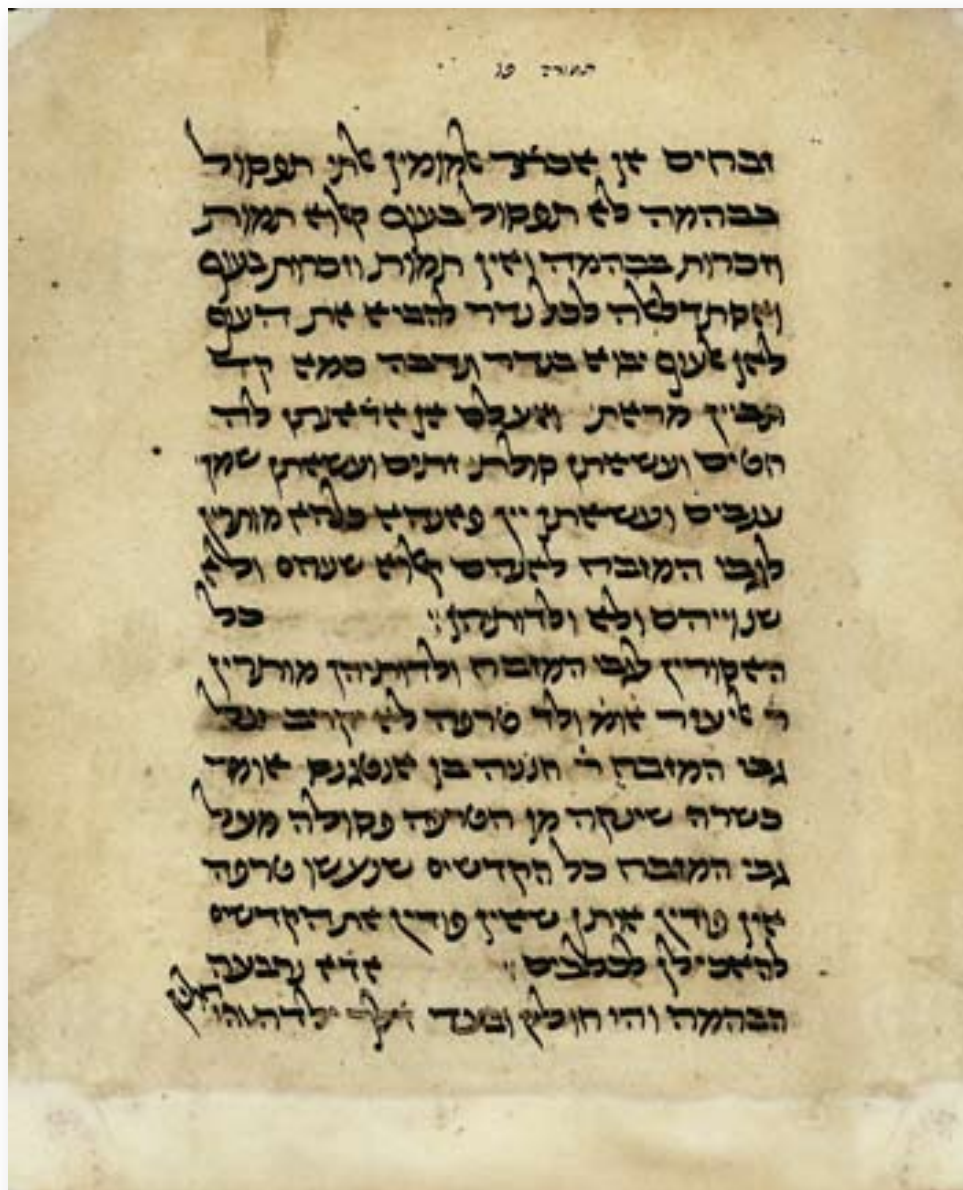 תמורה פו
זבחים אן אלמומין אלתי תפסול
בבהמה לא תפסול בעוף קאלוא תמות
וזכרות בבהמה ואין תמות וזכרות בעוף
לכל נדר להביא את העוף
לאן אלעוף יבוא בנדר ונדבה כמא קד
תבין מראת ואעלם אן אדא נתן לה
חטים ועשאתן סולת זתים ועשאתן שמן
ענבים ועשאתן יין פאנהא כלהא מותרין
לגבי המזבח לאנהם קאלוא שהם ולא
שנוייהם ולא ולדותיהן: כל
האסורין לגבי המזבח ולדותיהן מותרין
ר אליעזר אומ ולד טרפה לא יקרב על
גבי המזבח ר חננה בן אנטגנס אומר
כשרה שינקה מן הטרפה פסולה מעל
גבי המזבח כל הקדשים שנעשו טרפה
אין פודין אותן שאין פודין את הקדשים
להאכילן לכלבים: אדא נרבעה
הבהמה והיו חולין ובעד דלך